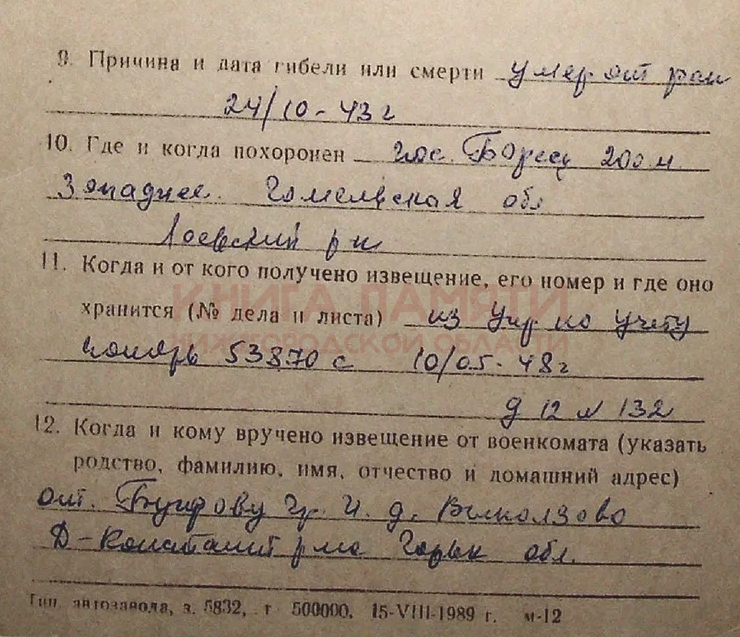 9. Причина и дата гибели или смерти умер от ран
24/10-43 г
10. Где и когда похоронен пос. Борец 200 м
Западнее. Гомельская обл
Лоевский р-н
11. Когда и от кого получено извещение, его номер и где оно
КНИГА ПАМЯТИ
хранится (№ дела и листа) из Упр по учету
НИЖЕГОРОДСКОЙ ОБЛАСТИ
53870 с 10/05-48 г
д 12 л 132
12. Когда и кому вручено извещение от военкомата (указать
родство, фамилию, имя, отчество и домашний адрес)
от. Гр. И. д.
Д-Констант р-на Горьк обл.
Тип. автозавода, з. 5832, т 500000, 15-VIII-1989 г. м-12